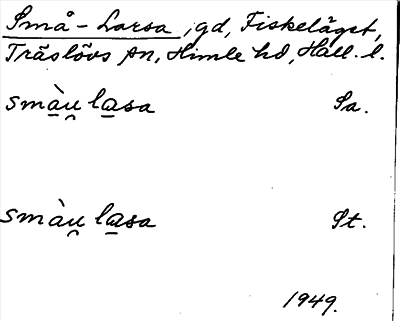 Små-Larsa, gd, Fiskeläget,
Träslövs sn, Himle hd, Hall. l.
smàu̯ lasa Sa.
smàu̯ lasa St.
1949.